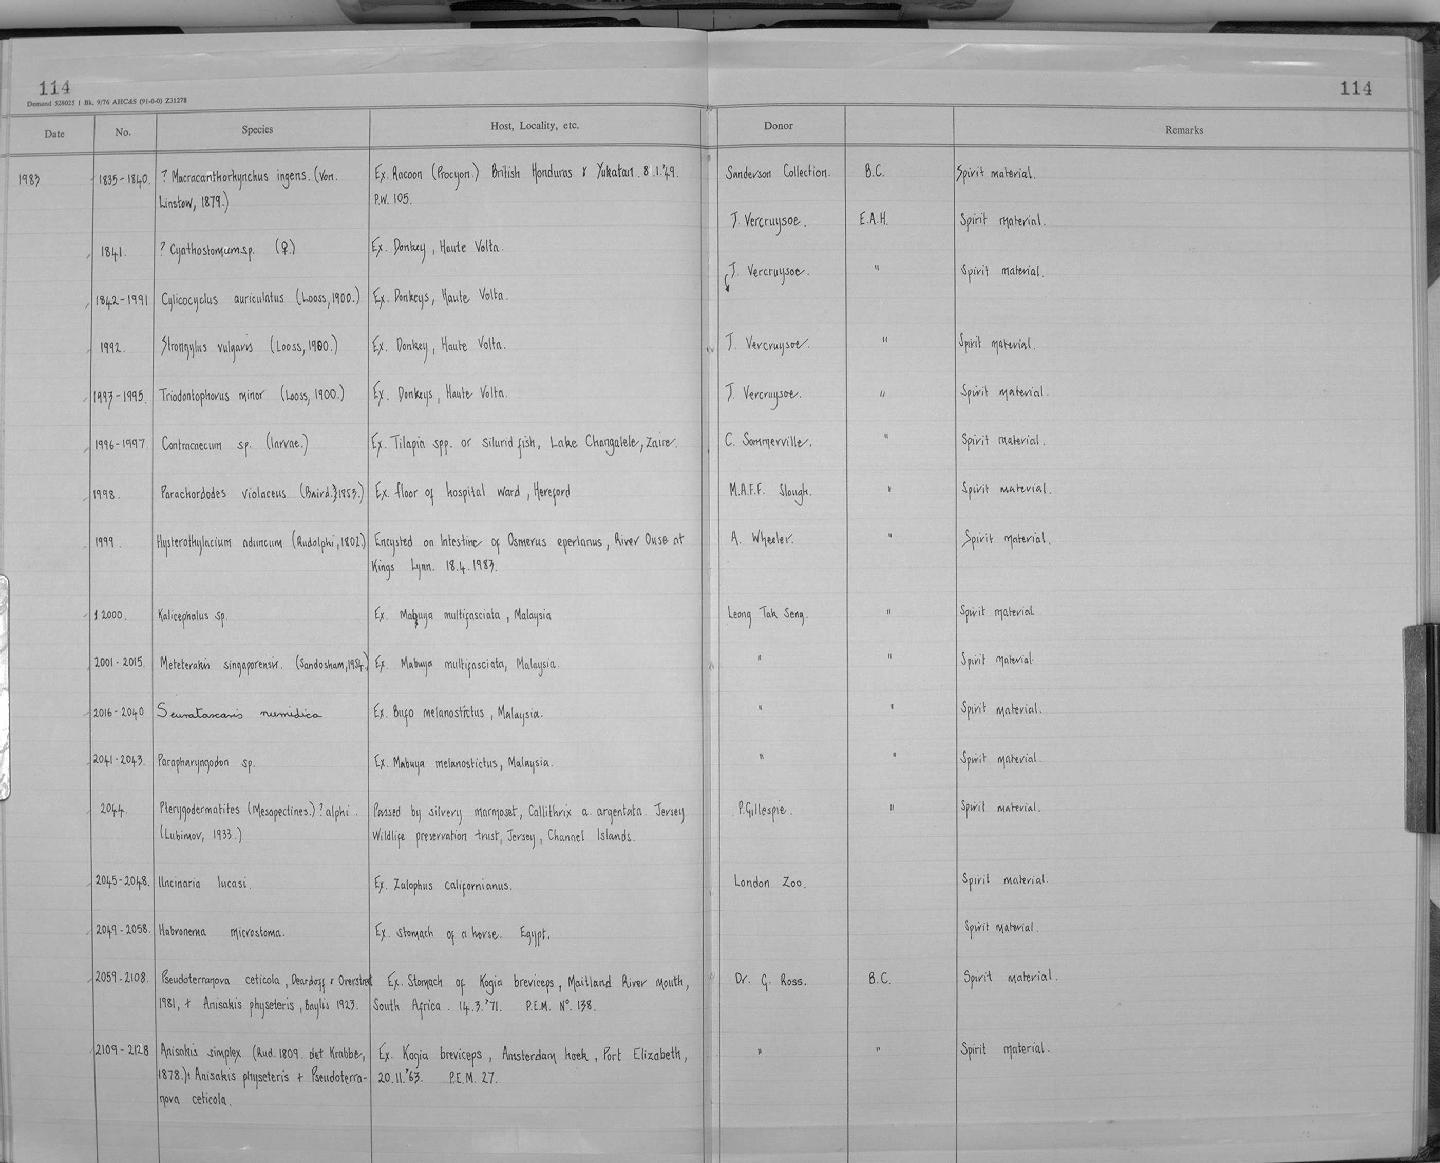 114
114
Demand 528025 1 Bk. 9/76 AHC&S (91-0-0) Z31278
Date No. Species Host, Locality, etc. Donor Remarks
1983 1835-1840. ? Macracanthorhynchus ingens. (Von. Ex. Racoon (Procyon.) British Honduras & Yukatan. 8.1.'49. Sanderson Collection. B.C. Spirit material.
Linstow, 1879.) P.W. 105.
1841. ? Cyathostomum sp. (♀.) Ex. Donkey, Haute Volta. J. Vercruysse. E.A.H. Spirit material.
1842-1991 Cylicocyclus auriculatus (Looss, 1900.) Ex. Donkeys, Haute Volta. J. Vercruysse. " Spirit material.
1992. Strongylus vulgaris (Looss, 1900.) Ex. Donkey, Haute Volta. J. Vercruysse. " Spirit material.
1993-1995. Triodontophorus minor (Looss, 1900.) Ex. Donkeys, Haute Volta. J. Vercruysse. " Spirit material.
1996-1997. Contracaecum sp. (larvae.) Ex. Tilapia spp. or silurid fish, Lake Changalele, Zaire. C. Sommerville. " Spirit material.
1998. Parachordodes violaceus (Baird, 1853.) Ex. floor of hospital ward, Hereford M.A.F.F. Slough. " Spirit material.
1999. Hysterothylacium aduncum (Rudolphi, 1802.) Encysted on Intestine of Osmerus eperlanus, River Ouse at A. Wheeler. " Spirit material.
Kings Lynn. 18.4.1983.
2000. Kalicephalus sp. Ex. Mabuya multifasciata, Malaysia Leong Tak Seng. " Spirit material
2001-2015. Meteterakis singaporensis. (Sandosham, 1954.) Ex. Mabuya multifasciata, Malaysia. " " Spirit material.
2016-2040 Seuratascaris numidica Ex. Bufo melanostictus, Malaysia. " " Spirit material.
2041-2043. Parapharyngodon sp. Ex. Mabuya melanostictus, Malaysia. " " Spirit material.
2044. Pterygodermatites (Mesopectines.) ? alphi. Passed by silvery marmoset, Callithrix a. argentata. Jersey P. Gillespie. " Spirit material.
(Lubimov, 1933.) Wildlife preservation trust, Jersey, Channel Islands.
2045-2048. Uncinaria lucasi. Ex. Zalophus californianus. London Zoo. Spirit material.
2049-2058. Habronema microstoma. Ex. stomach of a horse. Egypt. Spirit material.
2059-2108. Pseudoterranova ceticola, Deardorff & Overstreet Ex. Stomach of Kogia breviceps, Maitland River Mouth, Dr. G. Ross. B.C. Spirit material.
1981, + Anisakis physeteris, Baylis 1923. South Africa. 14.3.'71. P.E.M. No. 138.
2109-2128 Anisakis simplex (Rud. 1809. det Krabbe, Ex. Kogia breviceps, Amsterdam hoek, Port Elizabeth, " " Spirit material.
1878.) + Anisakis physeteris + Pseudoterra- 20.11.'63. P.E.M. 27.
nova ceticola.